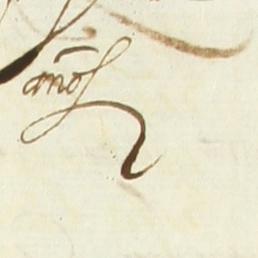 años